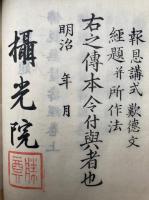 報恩講式 歎德文
經題並所作法
右之傳本令付與者也
明治 年 月
攝光院